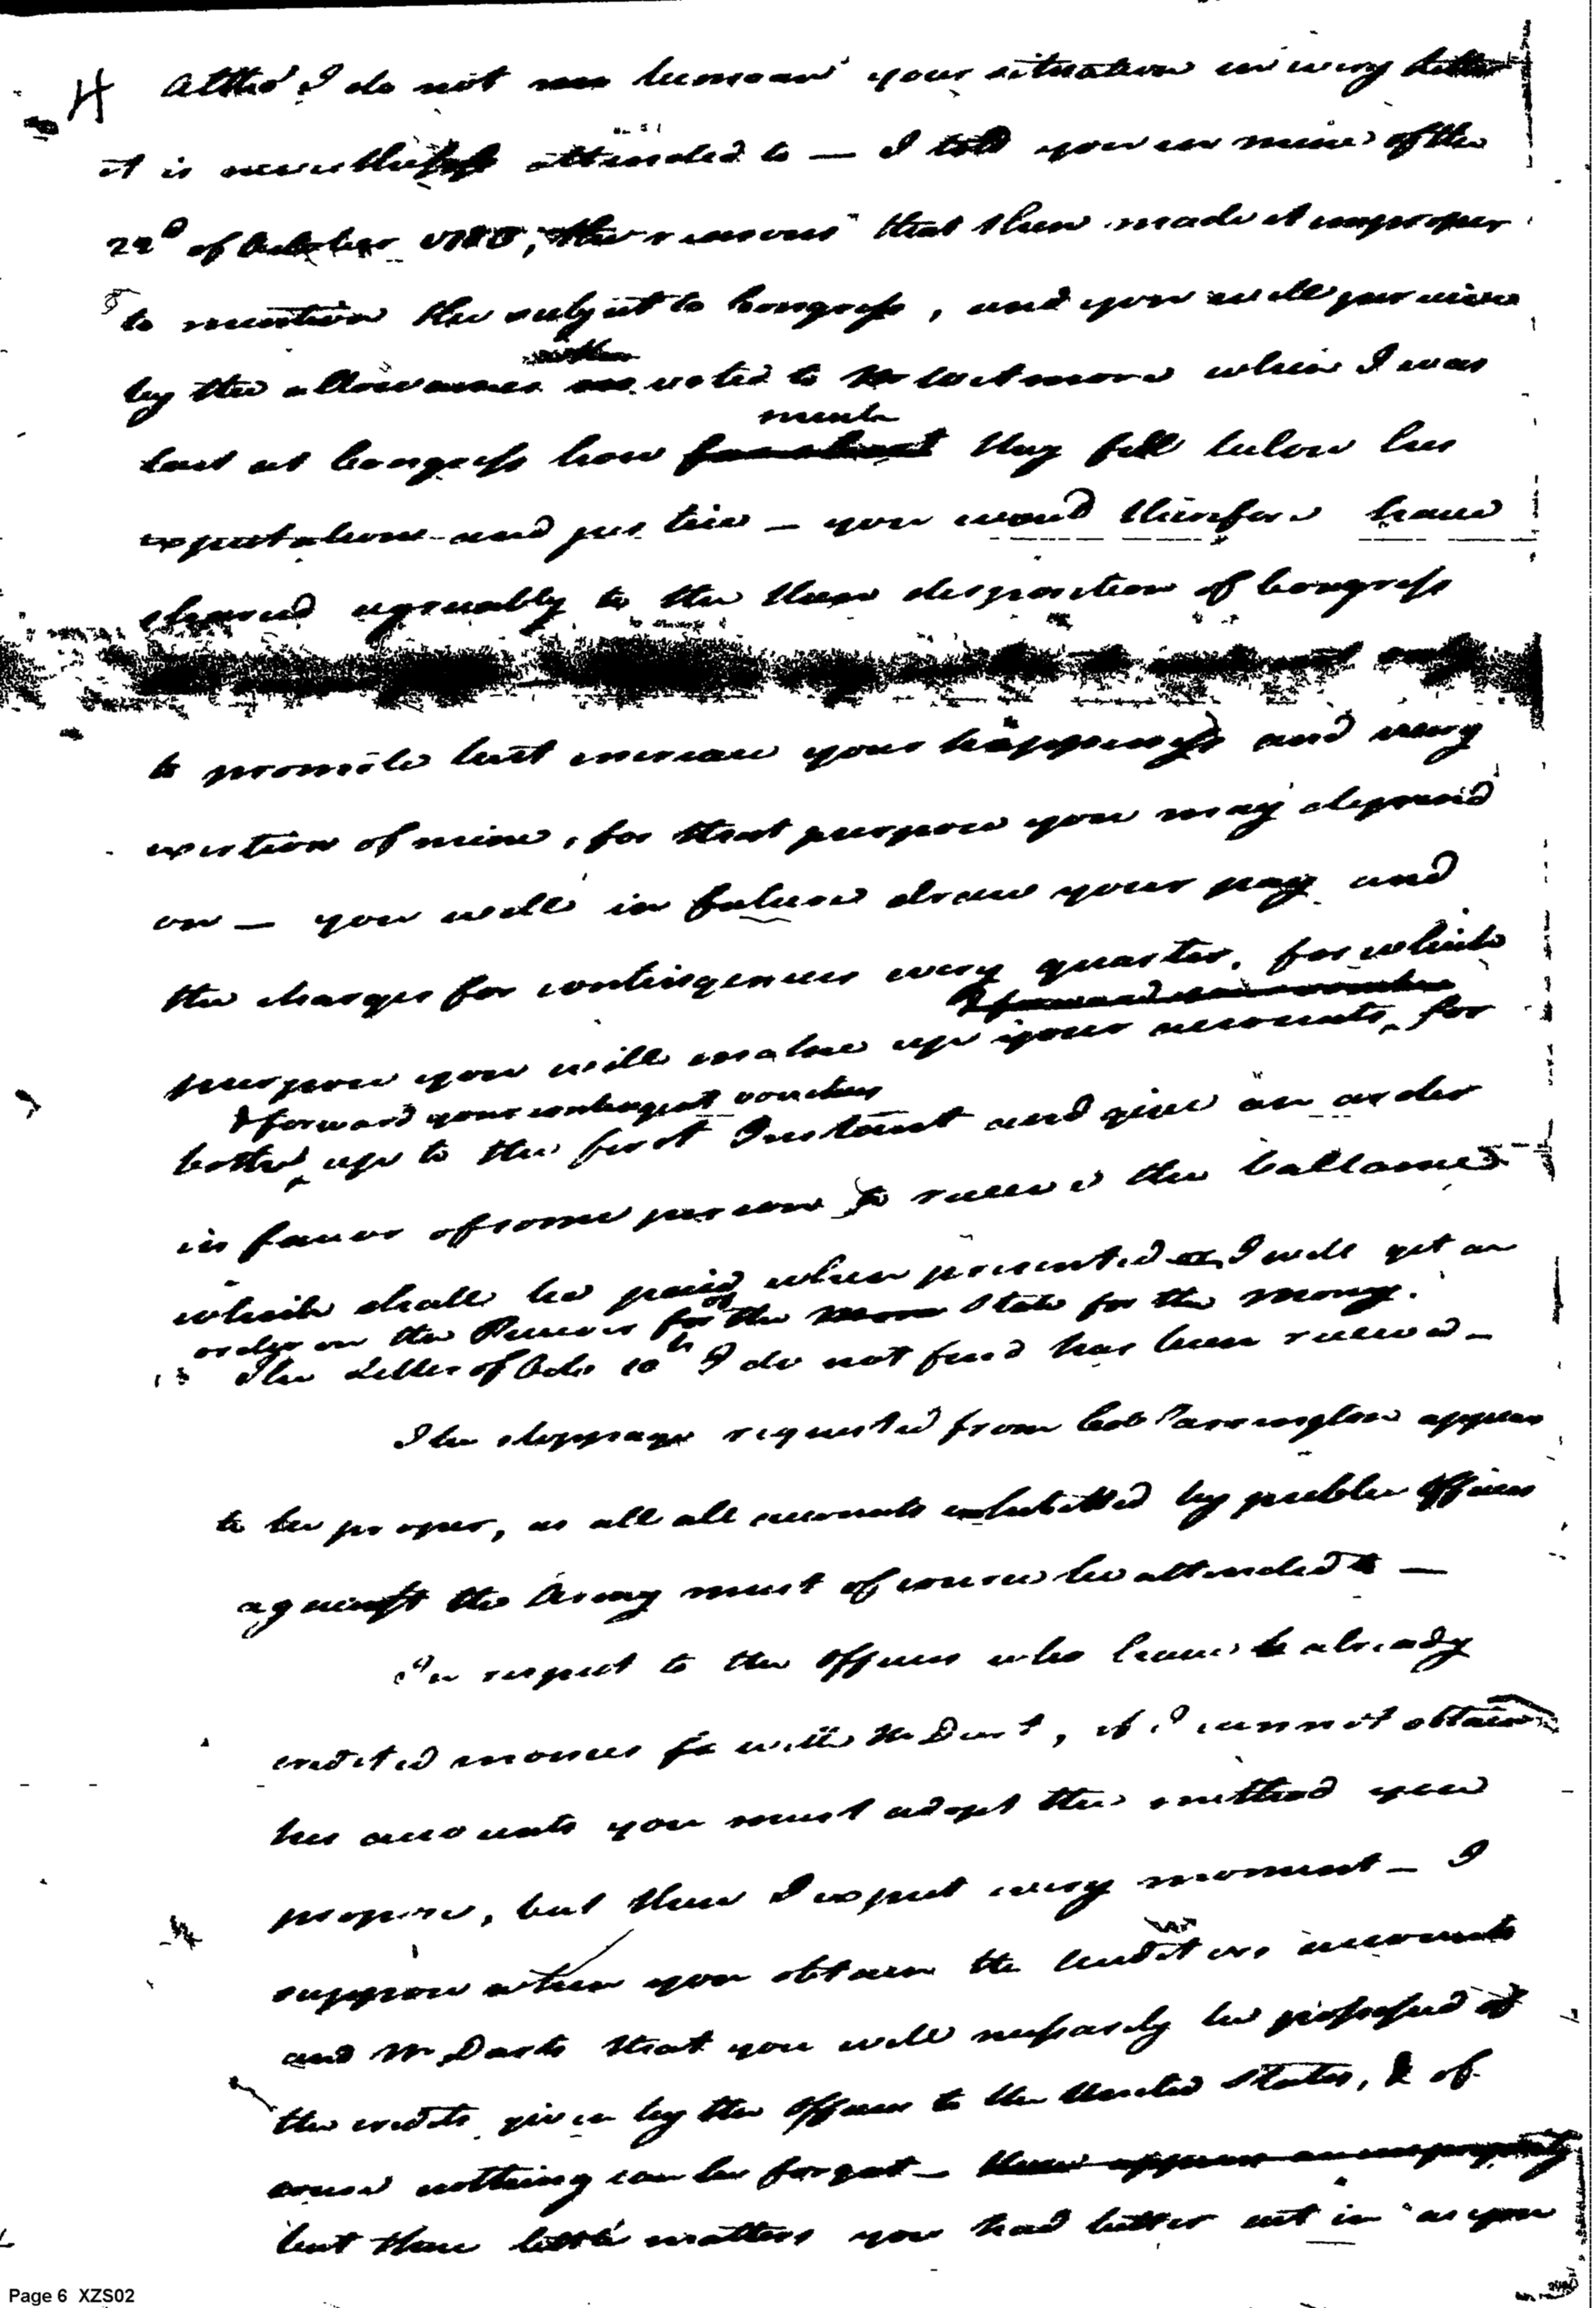 Altho' I do not bemoan your situation in every letter
it is nevertheless attended to — I told you in mine of the
22d of October 1780, the reasons that then made it improper
to mention the subject to Congress, and you will perceive
by the allowances voted to when I was
much
last at Congress how far short they fell below his
expectations and justice — you would therefore have
shared agreeably to the then disposition of Congress
not only
to promote but increase your happiness and every
exertion of mine, for that purpose you may depend
on — you will in future draw your pay and
the charges for contingencies every quarter, for which
& forward your vouchers
purpose you will make up your accounts, for
& forward your contingent vouchers
both up to the first Instant and give an order
in favor of some person to receive the ballance
which shall be paid when presented or I will get an
order on the Receiver of the State for the money.
The Letter of Octr 10th I do not find has been received —
The stoppage requested from Col Farrington appears
to be proper, as all all accounts exhibitted by public officers
against the Army must of course be attended to —
In respect to the officers who have already
credited monies with Mr Dart, if I cannot obtain
his accounts you must adopt the method you
propose, but these I expect every moment — I
suppose when you obtain the auditors accounts
and Mr Darts that you will necessarily be possessed of
the credits given by the officers to the United States, & of
course nothing can be forgot — there appears an impropriety
but these little matters you had better act in as you
Page 6 XZS02